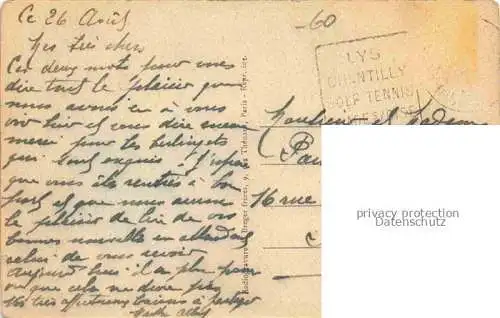 Ce 26 Août
Mes très chers
Ces deux mots pour vous
dire tout le plaisir que
nous avons eu à vous
voir hier et vous dire encore
merci pour les berlingots
qui sont exquis. J'espère
que vous êtes rentrés à bon
port et que nous aurons
le plaisir de lire de vos
bonnes nouvelles en attendant
celui de vous revoir
Aujourd'hui il a plu
que cela ne dure pas
Vos très affectueux baisers à partager
-60
LYS
CHANTILLY
GOLF TENNIS
Monsieur et Madame
16 rue
privacy protection
www.oldthing.de